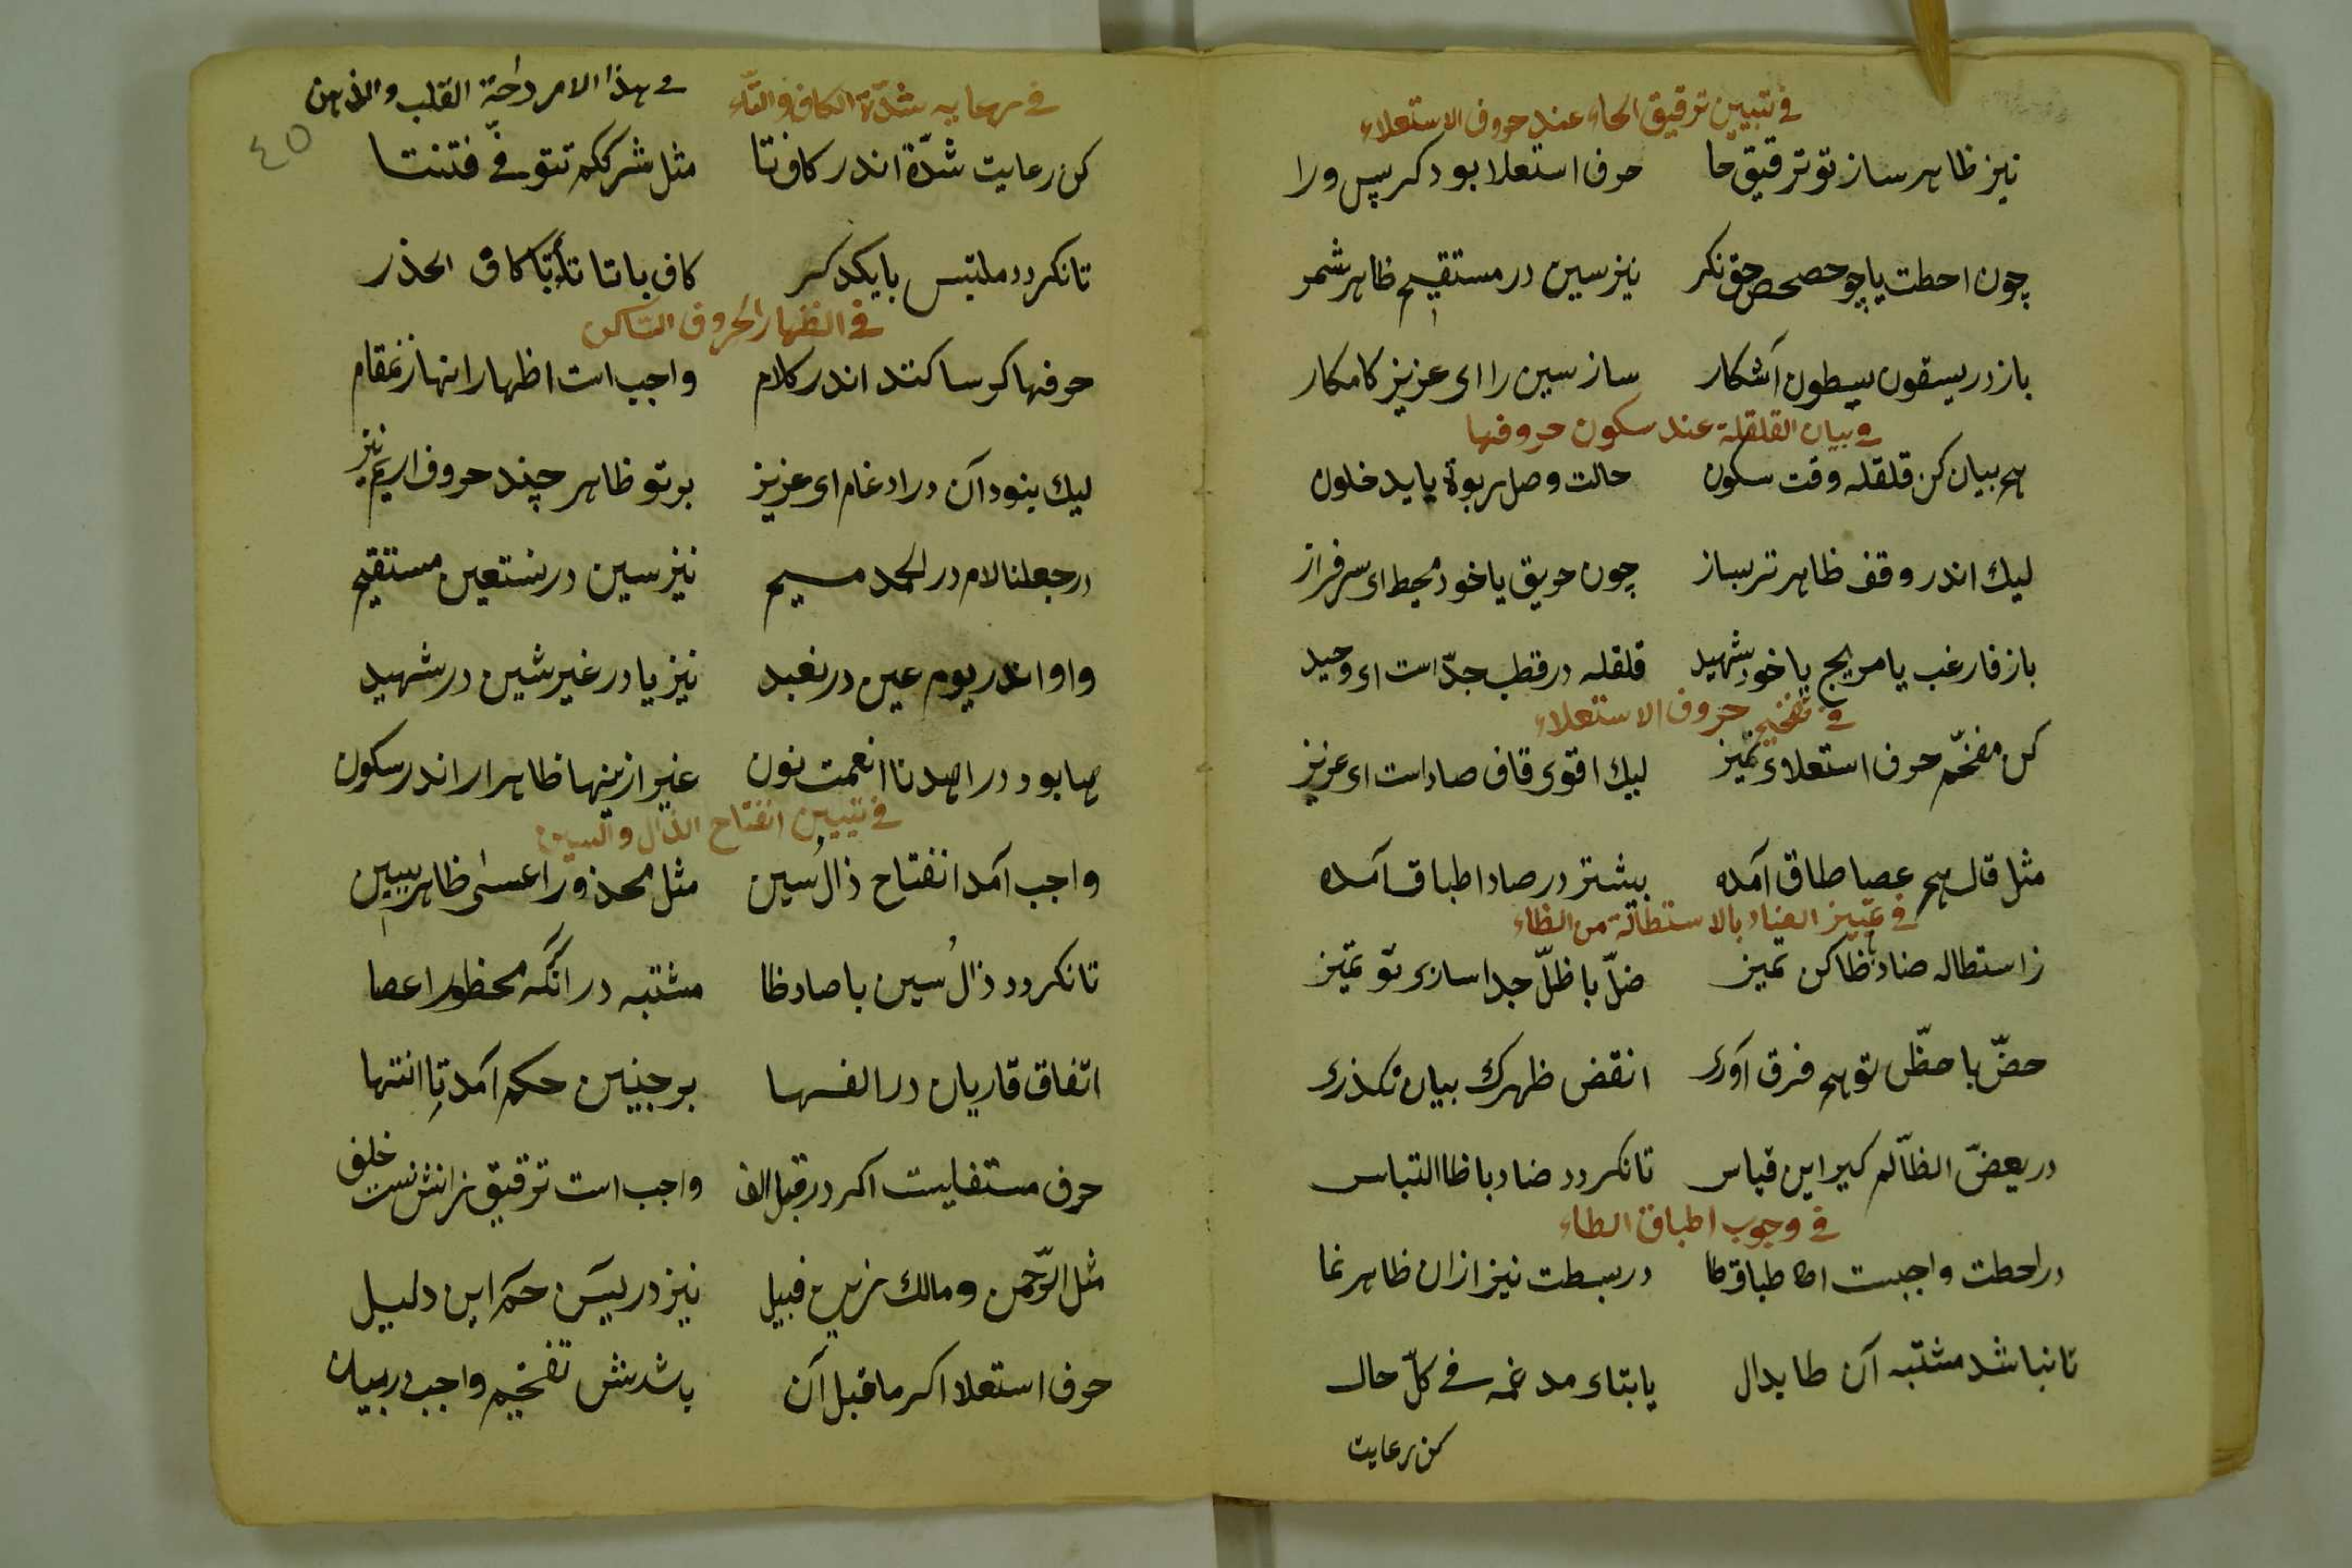 فی تبیین ترقیق الحاء عند حروف الاستعلاء
نیز ظاهر ساز تو ترقیق حا حرف استعلا بود کر پس ورا
چون احطت یا چو حصحص حق نکر نیز سین در مستقیم ظاهر شمر
باز در یسقون یسطون آشکار ساز سین را ای عزیز کامکار
فی بیان القلقلة عند سکون حروفها
هم بیان کن قلقله وقت سکون حالت وصل ربوة یا یدخلون
لیك اندر وقف ظاهرتر بساز چون حریق یا خود محیط ای سرفراز
باز فارغب یا مریج یا خود شهید قلقله در قطب جدّ است ای وحید
فی تفخیم حروف الاستعلاء
کن مفخّم حرف استعلاء تمیز لیك اقوی قاف صاد است ای عزیز
مثل قال هم عصا طاق آمده بیشتر در صاد اطباق آمده
فی تمییز الضاد بالاستطالة من الظاء
ز استطاله ضاد با ظا کن تمیز ضلّ با ظلّ جدا سازی تو تمیز
حضّ با حظّ تو هم فرق آوری انقض ظهرك بیان نکذری
در یعضّ الظّالم کیر این قیاس تا نکردد ضاد با ظا التباس
فی وجوب اطباق الطاء
در احطت واجبست اطباق طا در بسطت نیز ازان ظاهر نما
تا نباشد مشتبه آن طا بدال یا بتاء مدغمه فی کلّ حال
کن رعایت
فی هذا الامر راحة القلب والذهن
فی رعایه شدّة الکاف والتّاء
٤٥
کن رعایت شدّة اندر کاف تا مثل شرککم تتوفّی فتنتا
تا نکردد ملتبس با یکدکر کاف با تا تا بتا کاف الحذر
فی اظهار الحروف الساکن
حرفها کر ساکنند اندر کلام واجب است اظهار انها ز مقام
لیك بنود آن در ادغام ای عزیز بر تو ظاهر چند حروف اریم نیز
در جعلنا لام در الحمد میم نیز سین در نستعین مستقیم
واو اندر یوم عین در نعبد نیز یا در غیر شین در شهید
ها بود در اهدنا انعمت نون غیر ازینها ظاهر ار اندر سکون
فی تبیین انفتاح الذال والسین
واجب آمد انفتاح ذال سین مثل محذورا عسی ظاهر ببین
تا نکردد ذال سین با صاد ظا مشتبه در انکه محظورا عصا
اتفاق قاریان در الفها بر چنین حکم آمد تا انتها
حرف مستفلیست اکر در قبل الف واجب است ترقیق زانش نیست خلف
مثل الرّحمن و مالك زین قبیل نیز در یس حم این دلیل
حرف استعلا اکر ما قبل آن باشدش تفخیم واجب در بیان